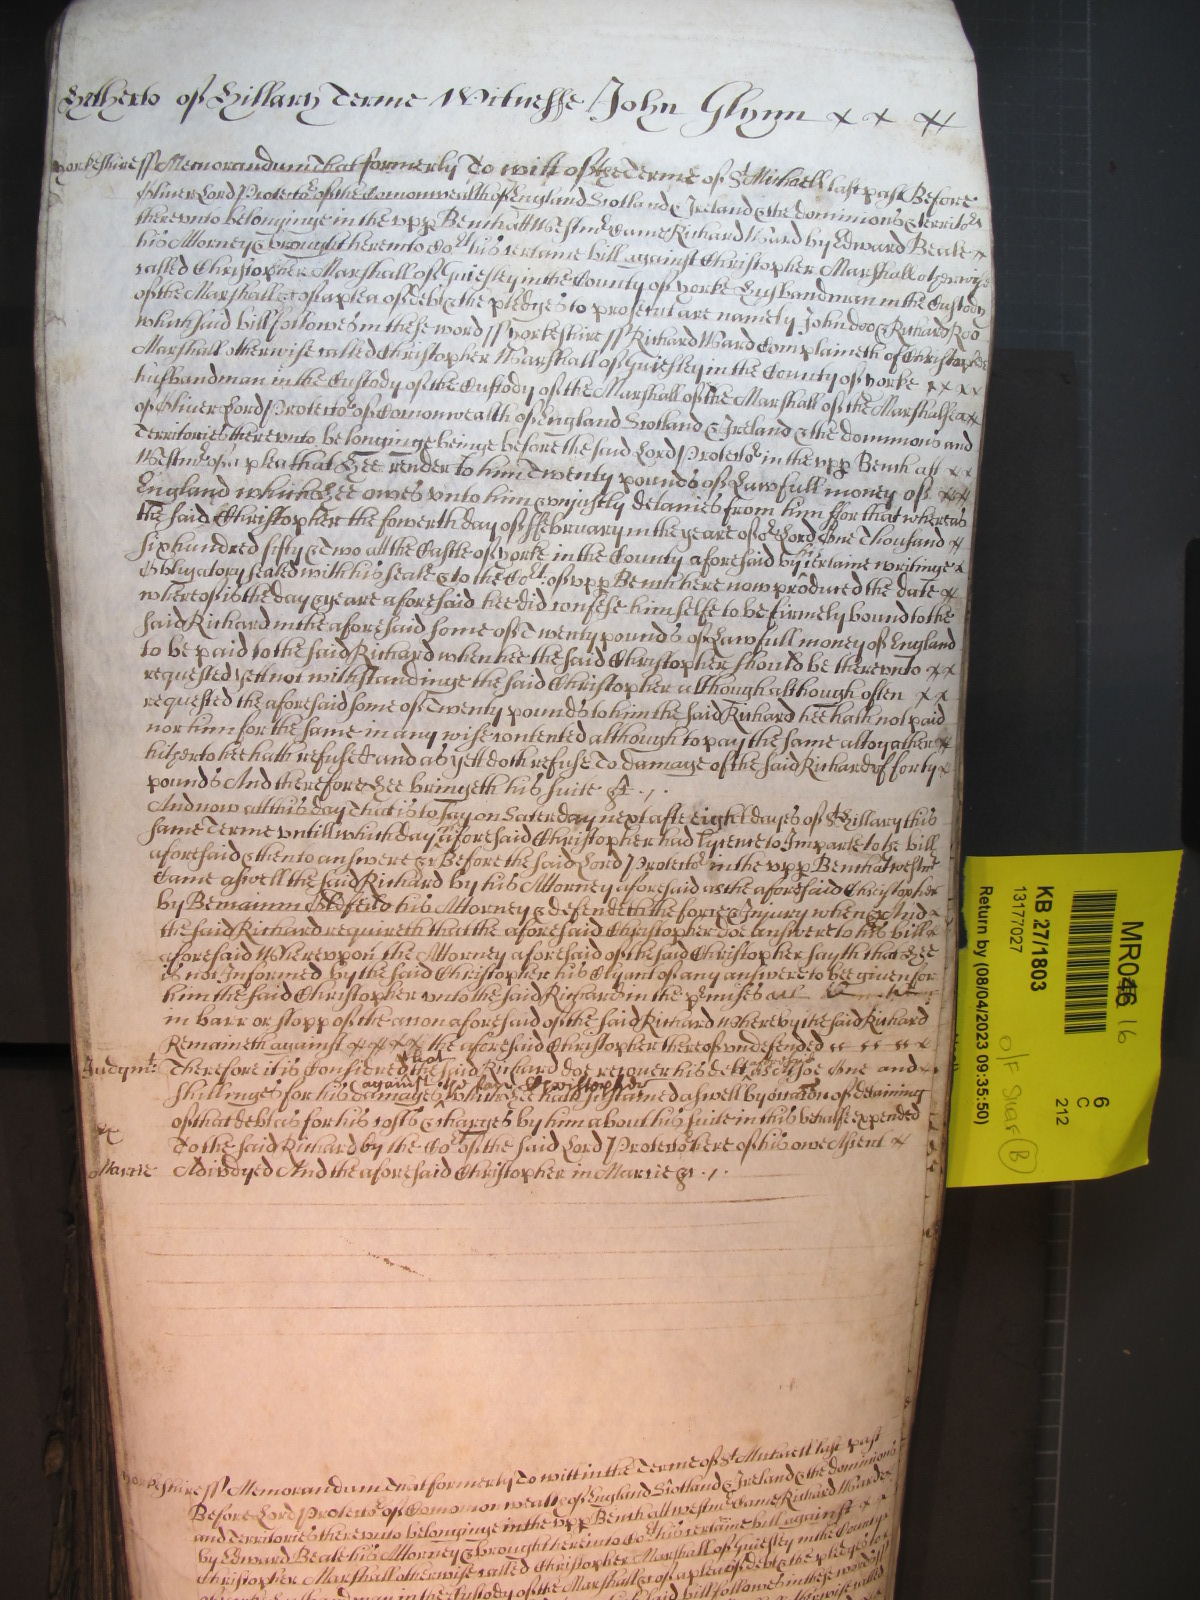 Hitherto of Hillary Terme Witnesse John Glynn x x x
Yorkeshire ss Memorandum That formerly To witt of the Terme of St Michaell last past Before
Oliver Lord Protector of the Comonwealth of England Scotland & Ireland & the dominions & territores
thereunto belonginge in the upp Bench att Westmr Came Richard Ward by Edward Beale x
his Attorney & brought here into Cort his certaine bill against Christopher Marshall otherwise
called Christopher Marshall of Guiesley in the County of Yorke Husbandman in the Custody
of the Marshall &c of a plea of debt & the pledges to prosecut are namely John doo & Richard Roo
which said bill followes in these word ss Yorkeshire ss Richard Ward Complaineth of Christopher
Marshall otherwise called Christopher Marshall of Guiesley in the County of Yorke x x x x
husbandman in the Custody of the Custody of the Marshall of the Marshall of the Marshalsea x x
of Oliver Lord Protector of Comonwealth of England Scotland & Ireland & the dominions and
Territories thereunto belonginge beinge before the said Lord Protector in the upp Bench att x x
Westmr of a plea that Hee render to him Twenty pounds of Lawfull money of x x
England which Hee owes unto him & unjustly detaines from him ffor that whereas
the said Christopher the fowerth day of ffebruary in the yeare of or Lord One Thousand x
six hundred fifty & Two att the Castle of Yorke in the County aforesaid by his certaine writinge x
Obligatory sealed with his seale & to the Cort of upp Bench here now produced the date x
whereof is the day & yeare aforesaid hee did confesse himselfe to be firmely bound to the
said Richard in the aforesaid some of Twenty pounds of Lawfull money of England
to be paid to the said Richard when hee the said Christopher should be thereunto x x
requested yett not withstandinge the said Christopher although although often x x
requested the aforesaid some of Twenty pounds to him the said Richard hee hath not paid
nor him for the same in any wise contented although to pay the same altogather x
hitherto hee hath refused and as yett doth refuse To damage of the said Richard of forty x
pounds And therefore Hee bringeth his suite &c . / .
And now att this day That is to say on Saterday next after eight dayes of St Hillary this
same Terme untill which day the aforesaid Christopher had lycence to Imparle to the bill
aforesaid & then to answere &c Before the said Lord Protector in the upp Bench att westmr
Came aswell the said Richard by his Attorney aforesaid as the aforesaid Christopher
by Beniamin his Attorney & defendeth the force & Injury when &c And x
the said Richard requireth that the aforesaid Christopher doe answere to his bill x
aforesaid Whereupon the Attorney aforesaid of the said Christopher sayth that Hee
is not Informed by the said Christopher his Clyant of any answere to bee given for
him the said Christopher unto the said Richard in the premises
in barr or stopp of the accon aforesaid of the said Richard Whereby the said Richard
Remaineth against x x x x the aforesaid Christopher thereof undefended
Judgmt Therefore it is Considered that the said Richard doe recover his debt aforesaid & Alsoe One and x
against the said Christopher
shillinges for his damages which Hee hath sustained aswell by occasion of detaininge
of that debt as for his costs & charges by him about his suite in this behalfe expended
To the said Richard by the Cort of the said Lord Protector here of his owne Assent x
Marcie Adiudged And the aforesaid Christopher in Marcie &c . / .
Yorkeshire ss Memorandum That formerly To witt in the Terme of St Michaell last past
Before Lord Protector of Comonwealth of England Scotland & Ireland & the dominions
and Territories thereunto belonginge in the upp Bench att westmr Came Richard Warde
by Edward Beale his Attorney & brought here into Cort his certaine bill against x x
Christopher Marshall otherwise called Christopher Marshall of Guiesley in the County
of Yorke husbandman in the Custody of the Marshall &c of a plea of debt & the pledges to
said bill followes in these word ss
MR046 16
KB 27/1803
13177027
Return by (08/04/2023 09:35:50)
6
C
212
O/F Star B